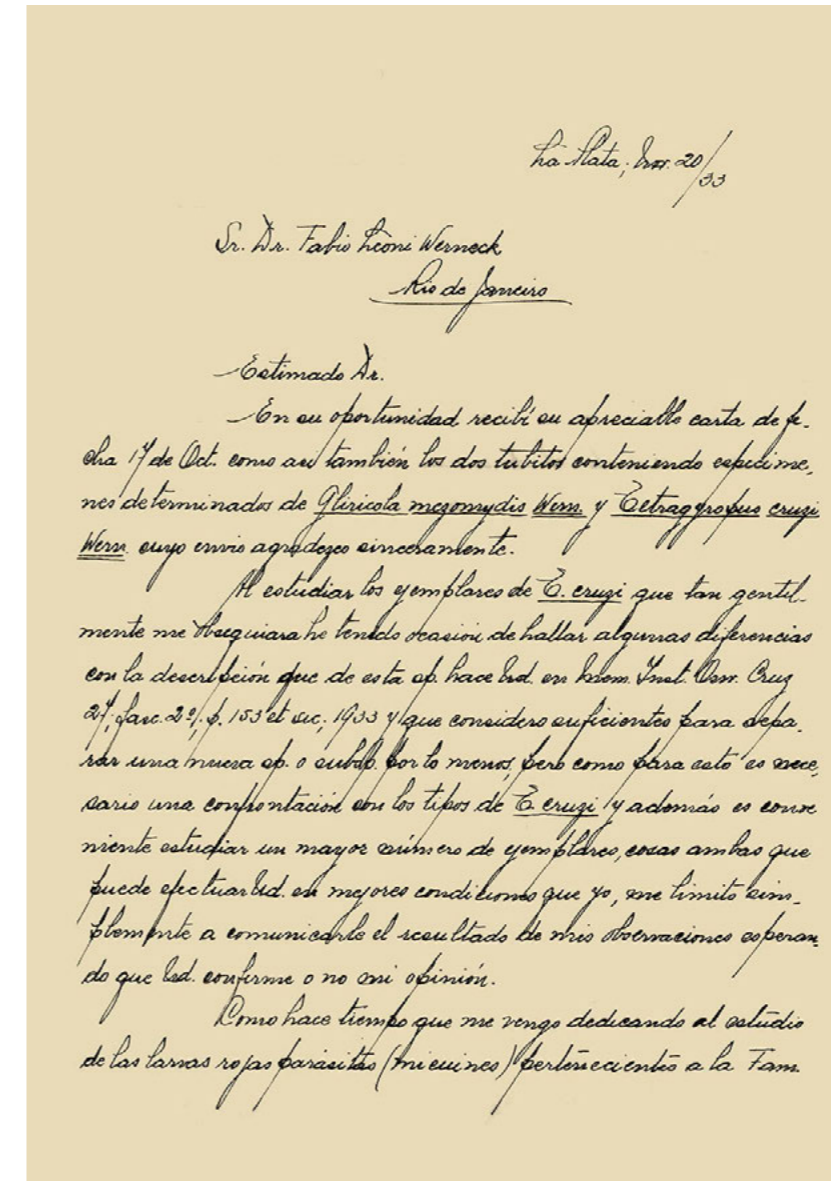 La Plata, Nov. 20/33
Sr. Dr. Fabio Leoni Werneck
Rio de Janeiro
Estimado Dr.
En su oportunidad recibí su apreciable carta de fe-
cha 17 de Oct. como así también los dos tubitos conteniendo especíme-
nes determinados de Gliricola mezomydis Wern. y Tetragyropus cruzi
Wern. cuyo envio agradezco sinceramente.
Al estudiar los ejemplares de T. cruzi que tan gentil-
mente me obsequiara he tenido ocasión de hallar algunas diferencias
con la descripción que de esta sp. hace Ud. en Mem. Inst. Osw. Cruz
27, fasc. 2º, p. 153 et sic, 1933 y que considero suficientes para sepa-
rar una nueva sp. o subsp. por lo menos, pero como para esto es nece-
sario una confrontación con los tipos de T. cruzi y además es conve
niente estudiar un mayor número de ejemplares, cosas ambas que
puede efectuar Ud. en mejores condiciones que yo, me limito sim-
plemente a comunicarle el resultado de mis observaciones esperan-
do que Ud. confirme o no mi opinión.
Como hace tiempo que me vengo dedicando al estudio
de las larvas rojas parásitas (micuines) pertenecientes a la Fam.